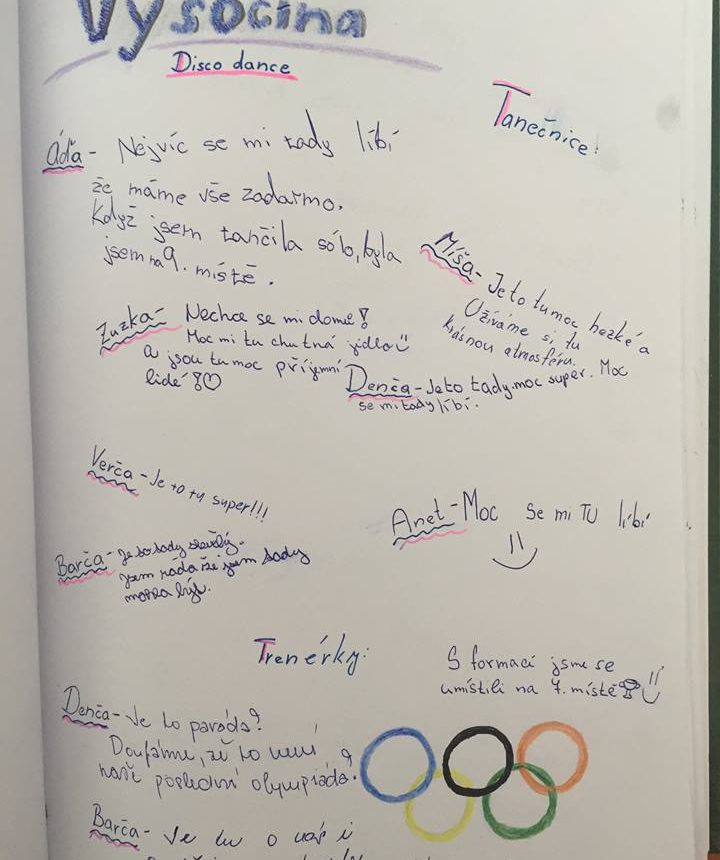 Vysočina
Disco dance
Tanečnice!
Áďa - Nejvíc se mi tady líbí
že máme vše zadarmo.
Když jsem tančila sólo, byla
jsem na 9. místě.
Míša - Je to tu moc hezké a
Užíváme si tu
krásnou atmosféru.
Zuzka - Nechce se mi domu!
Moc mi tu chutná jídlo
a jsou tu moc příjemní
lidé!
Denča - Je to tady moc super. Moc
se mi tady líbí.
Verča - Je to tu super!!!
Anet - Moc se mi TU líbí
Barča - Je to tady skvělý.
jsem ráda že jsem tady
mohla být.
Trenérky:
S formací jsme se
umístili na 7. místě
Denča - Je to paráda!
Doufáme, že to není
naše poslední olympiáda.
Barča - Je tu o nás i